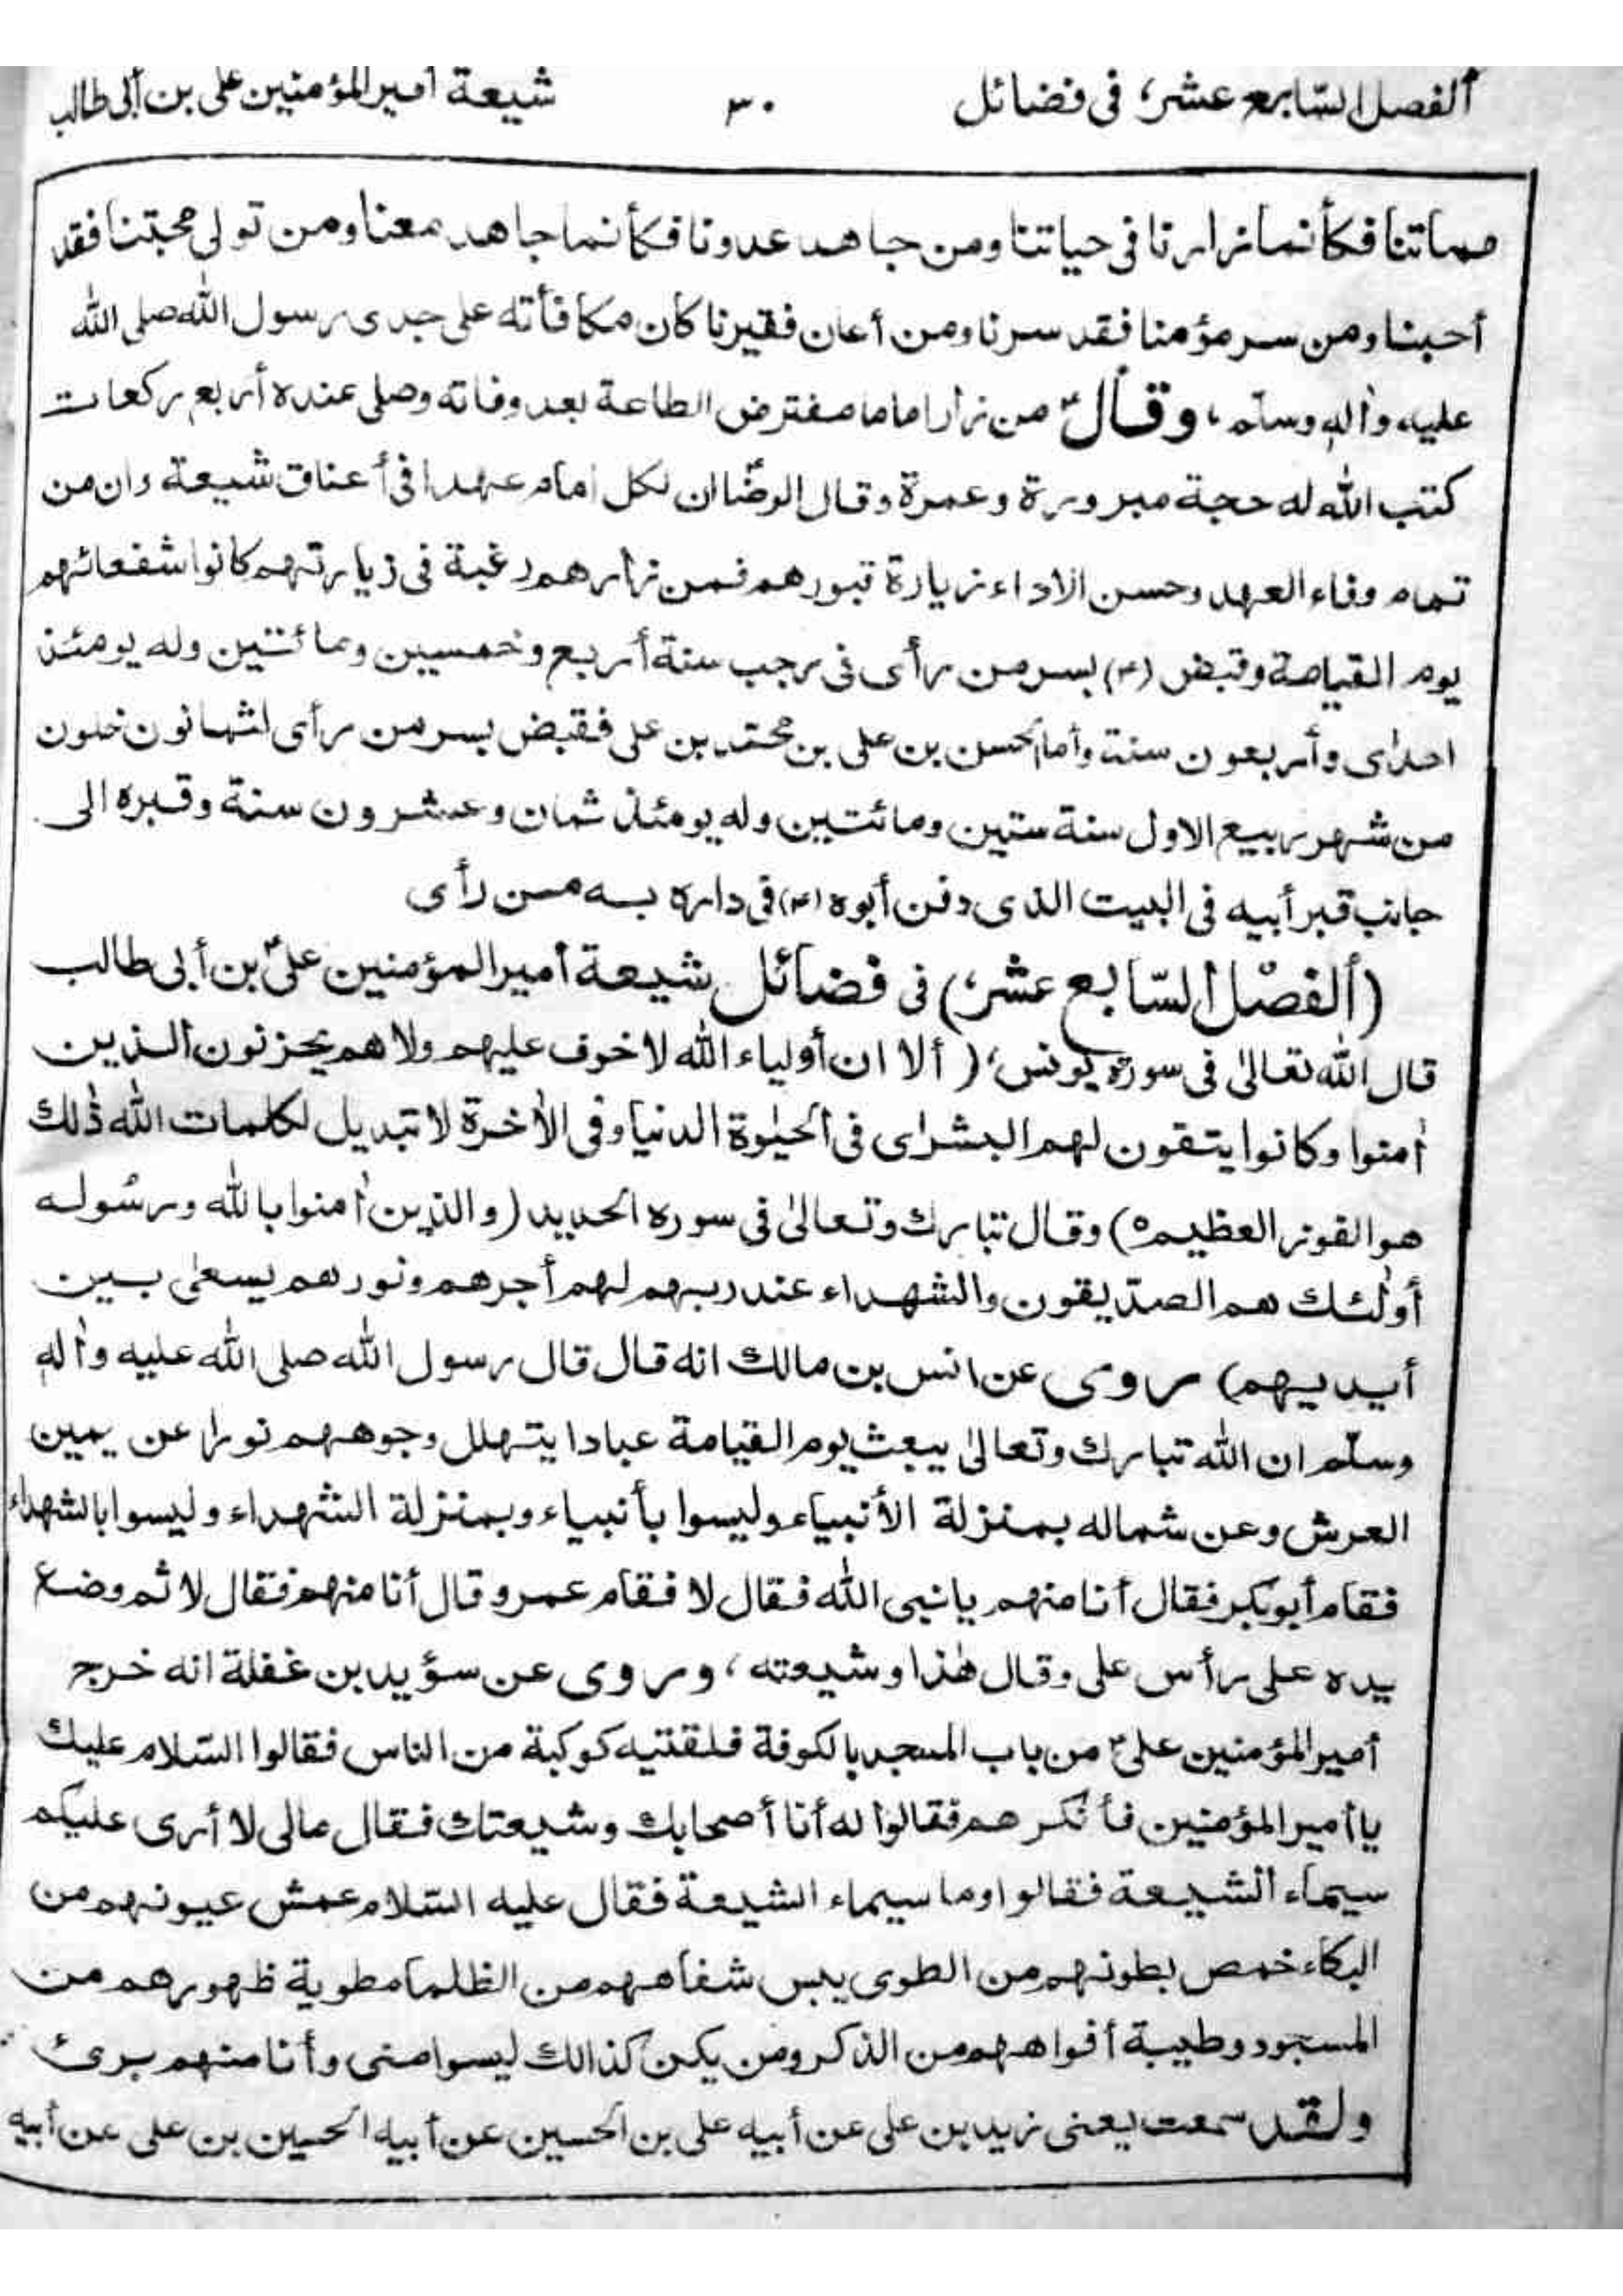 ألفصل السّابع عشر، فى فضائل ٣٠ شيعة أمير المؤمنين على بن أبى طالب
مماتنا فكأنما زارنا فى حياتنا ومن جاهد عدونا فكأنما جاهد معنا ومن تولى محبتنا فقد
أحبنا ومن سر مؤمنا فقد سرنا ومن أعان فقيرنا كان مكافأته على جدى رسول الله صلى الله
عليه واٰله وسلّم، وقالؑ من زار اماما مفترض الطاعة بعد وفاته وصلى عنده أربع ركعات
كتب الله له حجة مبرورة وعمرة وقال الرضاؑ ان لكل امام عهدا فى أعناق شيعة وان من
تمام وفاء العهد وحسن الاداء زيارة قبورهم فمن زارهم رغبة فى زيارتهم كانوا شفعائهم
يوم القيامة وقبض (ع) بسر من رأى فى رجب سنة أربع وخمسين ومائتين وله يومئذ
احدٰى وأربعون سنة وأما الحسن بن على بن محمّد بن على فقبض بسر من رأى لثمانون خلون
من شهر ربيع الاول سنة ستين ومائتين وله يومئذ ثمان وعشرون سنة وقبره الى
جانب قبر أبيه فى البيت الذى دفن أبوه (ع) فى داره بسه من رأى
(ألفصل السّابع عشر،) فى فضائل شيعة أمير المؤمنين علىؑ بن أبى طالب
قال الله تعالىٰ فى سورة يونس، (ألا ان أولياء الله لا خوف عليهم ولا هم يحزنون ألذين
اٰمنوا وكانوا يتقون لهم البشرٰى فى الحيٰوة الدنيا وفى الاٰخرة لا تبديل لكلمات الله ذٰلك
هو الفوز العظيم٥) وقال تبارك وتعالىٰ فى سوره الحديد (والذين اٰمنوا بالله ورسوله
أولٰئك هم الصدّيقون والشهداء عند ربهم لهم أجرهم ونورهم يسعىٰ بين
أيديهم) روى عن انس بن مالك انه قال قال رسول الله صلى الله عليه واٰله
وسلّم ان الله تبارك وتعالىٰ يبعث يوم القيامة عبادا يتهلل وجوههم نورا عن يمين
العرش وعن شماله بمنزلة الأنبياء وليسوا بأنبياء وبمنزلة الشهداء وليسوا بالشهداء
فقام أبوبكر فقال أنا منهم يا نبى الله فقال لا فقام عمر وقال أنا منهم فقال لا ثم وضع
يده على رأس على وقال هٰذا وشيعته، وروى عن سؤيد بن غفلة انه خرج
أمير المؤمنين علىؑ من باب المسجد بالكوفة فلقتيه كوكبة من الناس فقالوا السّلام عليك
يا أمير المؤمنين فأنكرهم فقالوا له أنا أصحابك وشيعتك فقال مالى لا أرى عليكم
سيماء الشيعة فقالوا وما سيماء الشيعة فقال عليه السّلام عمش عيونهم من
البكاء خمص بطونهم من الطوى يبس شفاههم من الظلما مطوية ظهورهم من
المسجود وطيبة أفواههم من الذكر ومن يكن كذالك ليسوا منى وأنا منهم برئ
ولقد سمعت يعنى زيد بن على عن أبيه على بن الحسين عن أبيه الحسين بن على عن أبيه